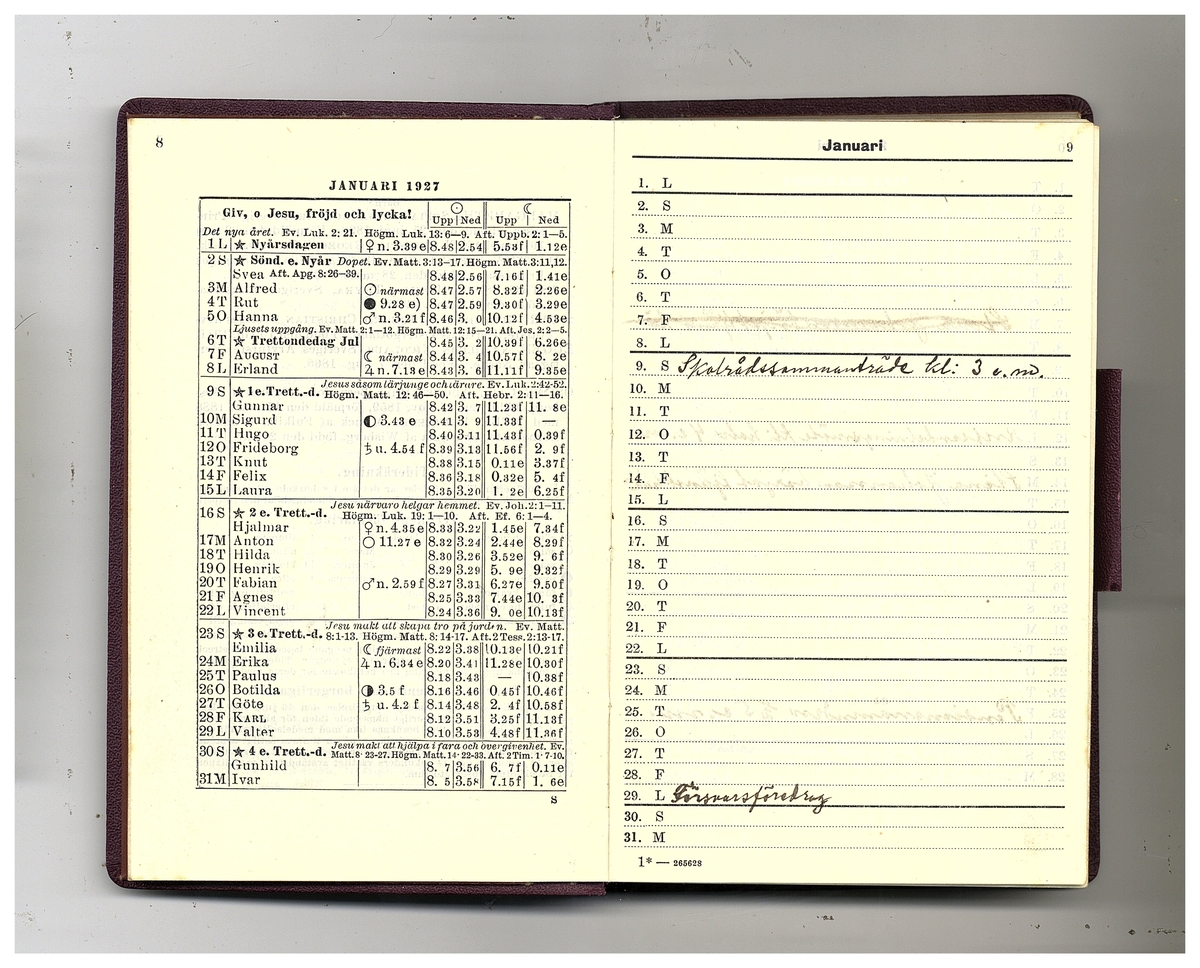 8
JANUARI 1927
Giv, o Jesu, fröjd och lycka! ☉ ☾
Upp Ned Upp Ned
Det nya året. Ev. Luk. 2: 21. Högm. Luk. 13: 6–9. Aft. Uppb. 2: 1–5.
1 L ★ Nyårsdagen ♀ n. 3.39 e 8.48 2.54 5.53f 1.12e
2 S ★ Sönd. e. Nyår Dopet. Ev. Matt. 3:13–17. Högm. Matt. 3:11,12.
Svea Aft. Apg. 8:26–39. 8.48 2.56 7.16f 1.41e
3M Alfred ☉ närmast 8.47 2.57 8.32f 2.26e
4T Rut ● 9.28 e) 8.47 2.59 9.30f 3.29e
5O Hanna ♂ n. 3.21 f 8.46 3. 0 10.12f 4.53e
Ljusets uppgång. Ev. Matt. 2: 1–12. Högm. Matt. 12: 15–21. Aft. Jes. 2: 2–5.
6T ★ Trettondedag Jul 8.45 3. 2 10.39f 6.26e
7F AUGUST ☾ närmast 8.44 3. 4 10.57f 8. 2e
8L Erland ♃ n. 7.13 e 8.43 3. 6 11.11f 9.35e
Jesus såsom lärjunge och lärare. Ev. Luk. 2:42-52.
9 S ★ 1 e. Trett.-d. Högm. Matt. 12: 46–50. Aft. Hebr. 2: 11–16.
Gunnar 8.42 3. 7 11.23f 11. 8e
10M Sigurd ◐ 3.43 e 8.41 3. 9 11.33f —
11T Hugo 8.40 3.11 11.43f 0.39f
12O Frideborg ♄ u. 4.54 f 8.39 3.13 11.56f 2. 9f
13T Knut 8.38 3.15 0.11e 3.37f
14F Felix 8.36 3.18 0.32e 5. 4f
15L Laura 8.35 3.20 1. 2e 6.25f
Jesu närvaro helgar hemmet. Ev. Joh. 2: 1–11.
16 S ★ 2 e. Trett.-d. Högm. Luk. 19: 1–10. Aft. Ef. 6: 1–4.
Hjalmar ♀ n. 4.35 e 8.33 3.22 1.45e 7.34f
17M Anton ○ 11.27 e 8.32 3.24 2.44e 8.29f
18T Hilda 8.30 3.26 3.52e 9. 6f
19O Henrik 8.29 3.29 5. 9e 9.32f
20T Fabian ♂ n. 2.59 f 8.27 3.31 6.27e 9.50f
21F Agnes 8.25 3.33 7.44e 10. 3f
22L Vincent 8.24 3.36 9. 0e 10.13f
Jesu makt att skapa tro på jorden. Ev. Matt.
23 S ★ 3 e. Trett.-d. 8:1-13. Högm. Matt. 8: 14-17. Aft. 2 Tess. 2:13-17.
Emilia ☾ fjärmast 8.22 3.38 10.13e 10.21f
24M Erika ♃ n. 6.34 e 8.20 3.41 11.28e 10.30f
25T Paulus 8.18 3.43 — 10.38f
26O Botilda ◑ 3.5 f 8.16 3.46 0.45f 10.46f
27T Göte ♄ u. 4.2 f 8.14 3.48 2. 4f 10.58f
28F KARL 8.12 3.51 3.25f 11.13f
29L Valter 8.10 3.53 4.48f 11.36f
Jesu makt att hjälpa i fara och övergivenhet. Ev.
30 S ★ 4 e. Trett.-d. Matt. 8: 23-27. Högm. Matt. 14: 22-33. Aft. 2 Tim. 1: 7-10.
Gunhild 8. 7 3.56 6. 7f 0.11e
31M Ivar 8. 5 3.58 7.15f 1. 6e
S
Januari 9
1. L
2. S
3. M
4. T
5. O
6. T
7. F
8. L
9. S Skolrådssammanträde kl: 3 e. m.
10. M
11. T
12. O
13. T
14. F
15. L
16. S
17. M
18. T
19. O
20. T
21. F
22. L
23. S
24. M
25. T
26. O
27. T
28. F
29. L Försvarsföredrag
30. S
31. M
1* — 265628